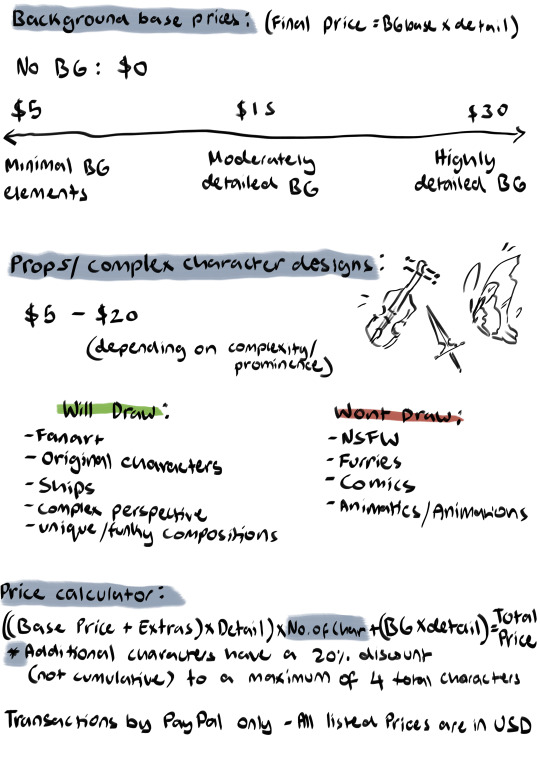 Background base prices: (Final price = BG base x detail)
No BG: $0
$5 $15 $30
Minimal BG elements
Moderately detailed BG
Highly detailed BG
Props/complex character designs:
$5 - $20
(depending on complexity/
prominence)
Will Draw:
- Fanart
- Original characters
- Ships
- complex perspective
- unique/funky compositions
Wont Draw:
- NSFW
- Furries
- Comics
- Animatics/Animations
Price calculator:
((Base Price + Extras) x Detail) x No. of Char + (BG x detail) = Total Price
* Additional characters have a 20% discount
(not cumulative) to a maximum of 4 total characters
Transactions by PayPal only - All listed Prices are in USD